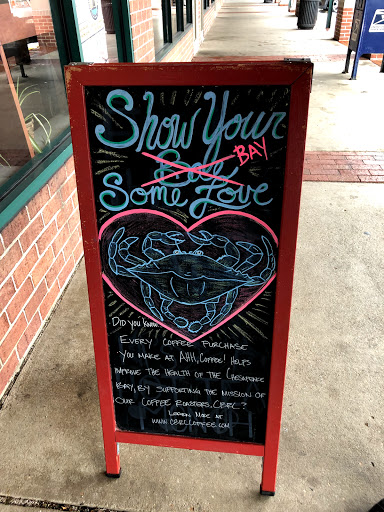 Show Your
Bae BAY
Some Love
Did you know?
Every coffee purchase
you make at Ahh, Coffee! helps
improve the health of the Chesapeake
Bay, by supporting the mission of
our coffee roasters, CBRC?
Learn More at
www.CBRCCoffee.com